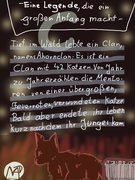 -Eine Legende, die ein
großen Anfang macht-
Tief im Wald lebte ein Clan,
namens Ahornclan. Es ist ein
Clan mit 42 Katzen. Von Jahr
zu Jahr erzählen die Mento-
ren von einer über großen,
verwundeten Katze
Bald aber endete ihr leben
kurz nachdem ihr Junges kam